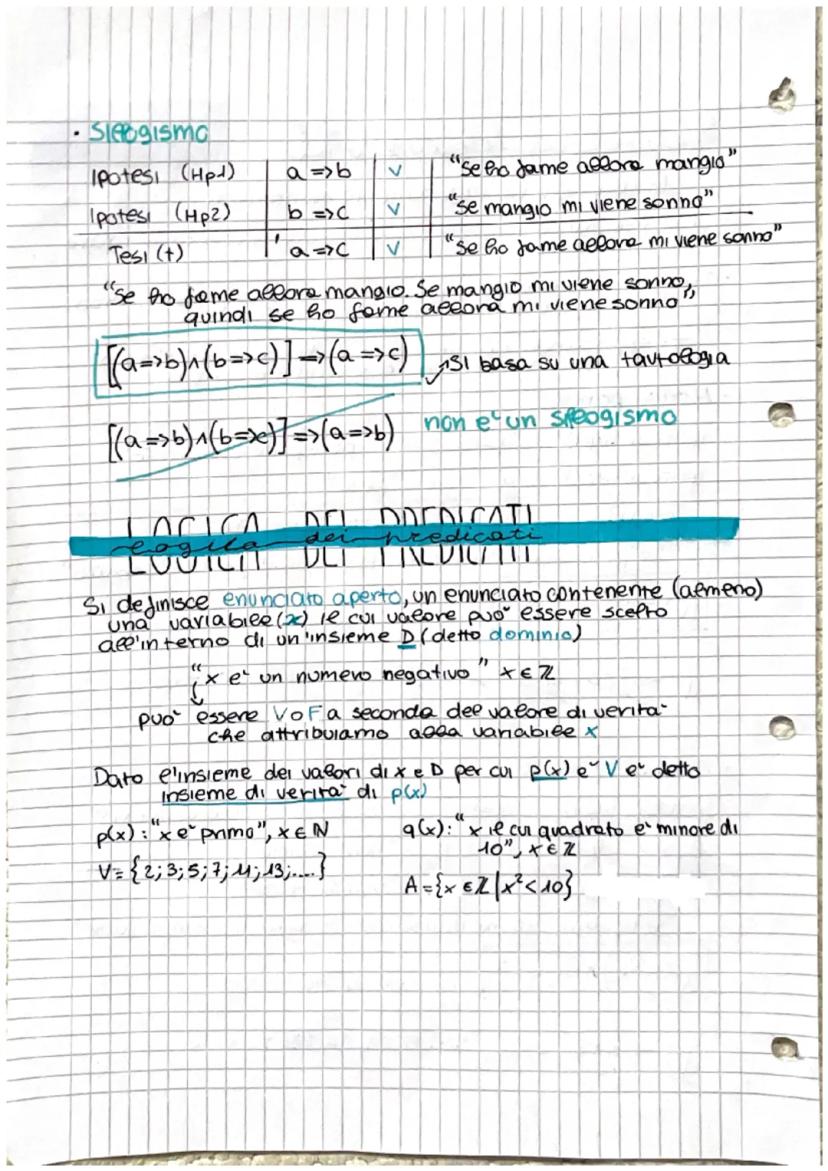 • Sillogismo
Ipotesi (Hp1) a => b V "se ho fame allora mangio"
Ipotesi (Hp2) b => c V "se mangio mi viene sonno"
Tesi (t) a => c V "se ho fame allora mi viene sonno"
"Se ho fame allora mangio. Se mangio mi viene sonno,
quindi se ho fame allora mi viene sonno"
[(a=>b)∧(b=>c)] => (a=>c) si basa su una tautologia
[(a=>b)∧(b=>c)] => (a=>b) non e' un sillogismo
LOGICA DEI PREDICATI
logica dei predicati
LOGICA DEI PREDICATI
Si definisce enunciato aperto, un enunciato contenente (almeno)
una variabile (x) le cui valore puo' essere scelto
all'interno di un'insieme D (detto dominio)
"x e' un numero negativo" x ∈ ℤ
puo' essere V o F a seconda del valore di verita'
che attribuiamo alla variabile x
Dato l'insieme dei valori di x ∈ D per cui p(x) e' V e' detto
insieme di verita' di p(x)
p(x): "x e' primo", x ∈ ℕ
V = {2; 3; 5; 7; 11; 13; ....}
q(x): "x il cui quadrato e' minore di
10", x ∈ ℤ
A = {x ∈ ℤ | x² < 10}